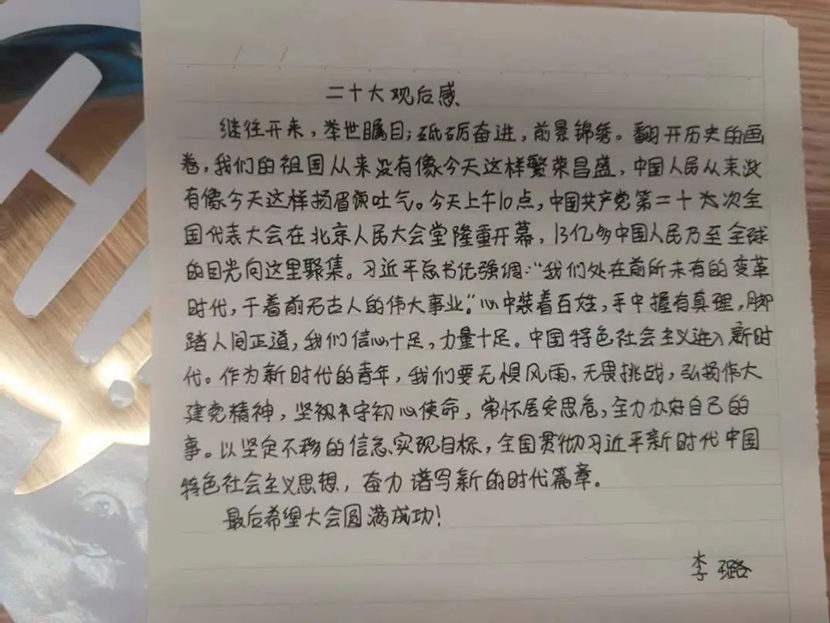 二十大观后感
继往开来，举世瞩目；砥砺奋进，前景锦绣。翻开历史的画
卷，我们的祖国从来没有像今天这样繁荣昌盛，中国人民从来没
有像今天这样扬眉吐气。今天上午10点，中国共产党第二十次全
国代表大会在北京人民大会堂隆重开幕，13亿多中国人民乃至全球
的目光向这里聚集。习近平总书记强调："我们处在前所未有的变革
时代，干着前无古人的伟大事业。"心中装着百姓，手中握有真理，脚
踏人间正道，我们信心十足，力量十足。中国特色社会主义进入新时
代。作为新时代的青年，我们要无惧风雨、无畏挑战，弘扬伟大
建党精神，坚守初心使命，常怀居安思危，全力办好自己的
事。以坚定不移的信念、实现目标，全国贯彻习近平新时代中国
特色社会主义思想，奋力谱写新的时代篇章。
最后希望大会圆满成功！
李璐